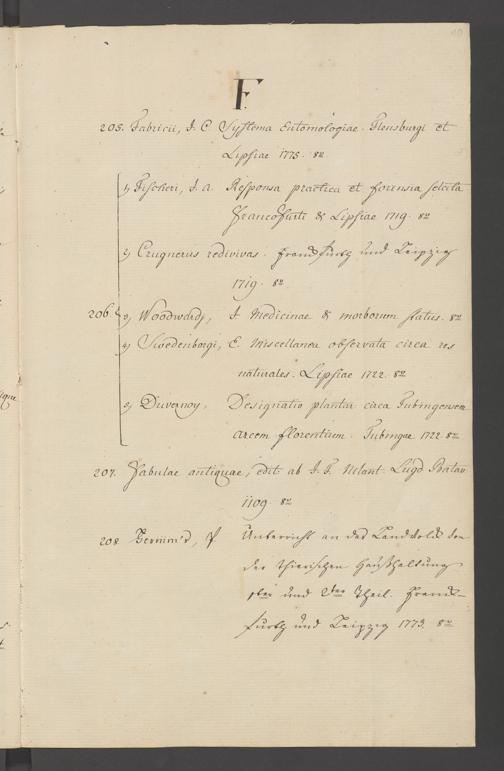 F
205. Fabricii, J. C Systema Entomologiae. Flensburgi et
Lipsiae 1775. 8º
1) Fischeri, J. A. Responsa practica et forensia selecta
Francofurti & Lipsiae 1719. 8º
2) Crugnerus redivivus. Franckfurth und Leipzig
1719. 8º
206. 3) Woodwardi, J. Medicinae & morborum status. 8º
4) Swedenborgi, E. Miscellanea observata circa res
naturales. Lipsiae 1722. 8º
5) Duvernoy. Designatio plantar. circa Tubingensem
arcem florentium. Tubingae 1722. 8º
207. Fabulae antiquae, edit. ab J. F. Lugd Batav
1709. 8º
208. Unterricht an das Landvolk von
der thierischen Haushaltung
1ter und 2ter Theil. Franck-
furth und Leipzig 1773. 8º